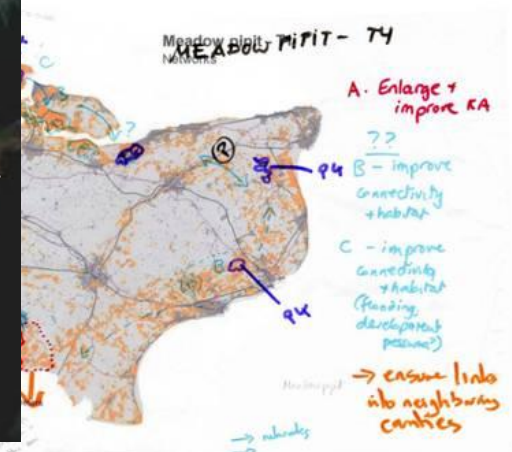 Meadow pipit - T
Networks
MEADOW PIPIT - T4
A. Enlarge +
improve KA
??
B - improve
connectivity
+ habitat
C - improve
connectivity
+ habitat
(flooding,
development
pressure?)
→ ensure links
into neighbouring
counties
C
B
?
?
94
B
94
Meadow pipit